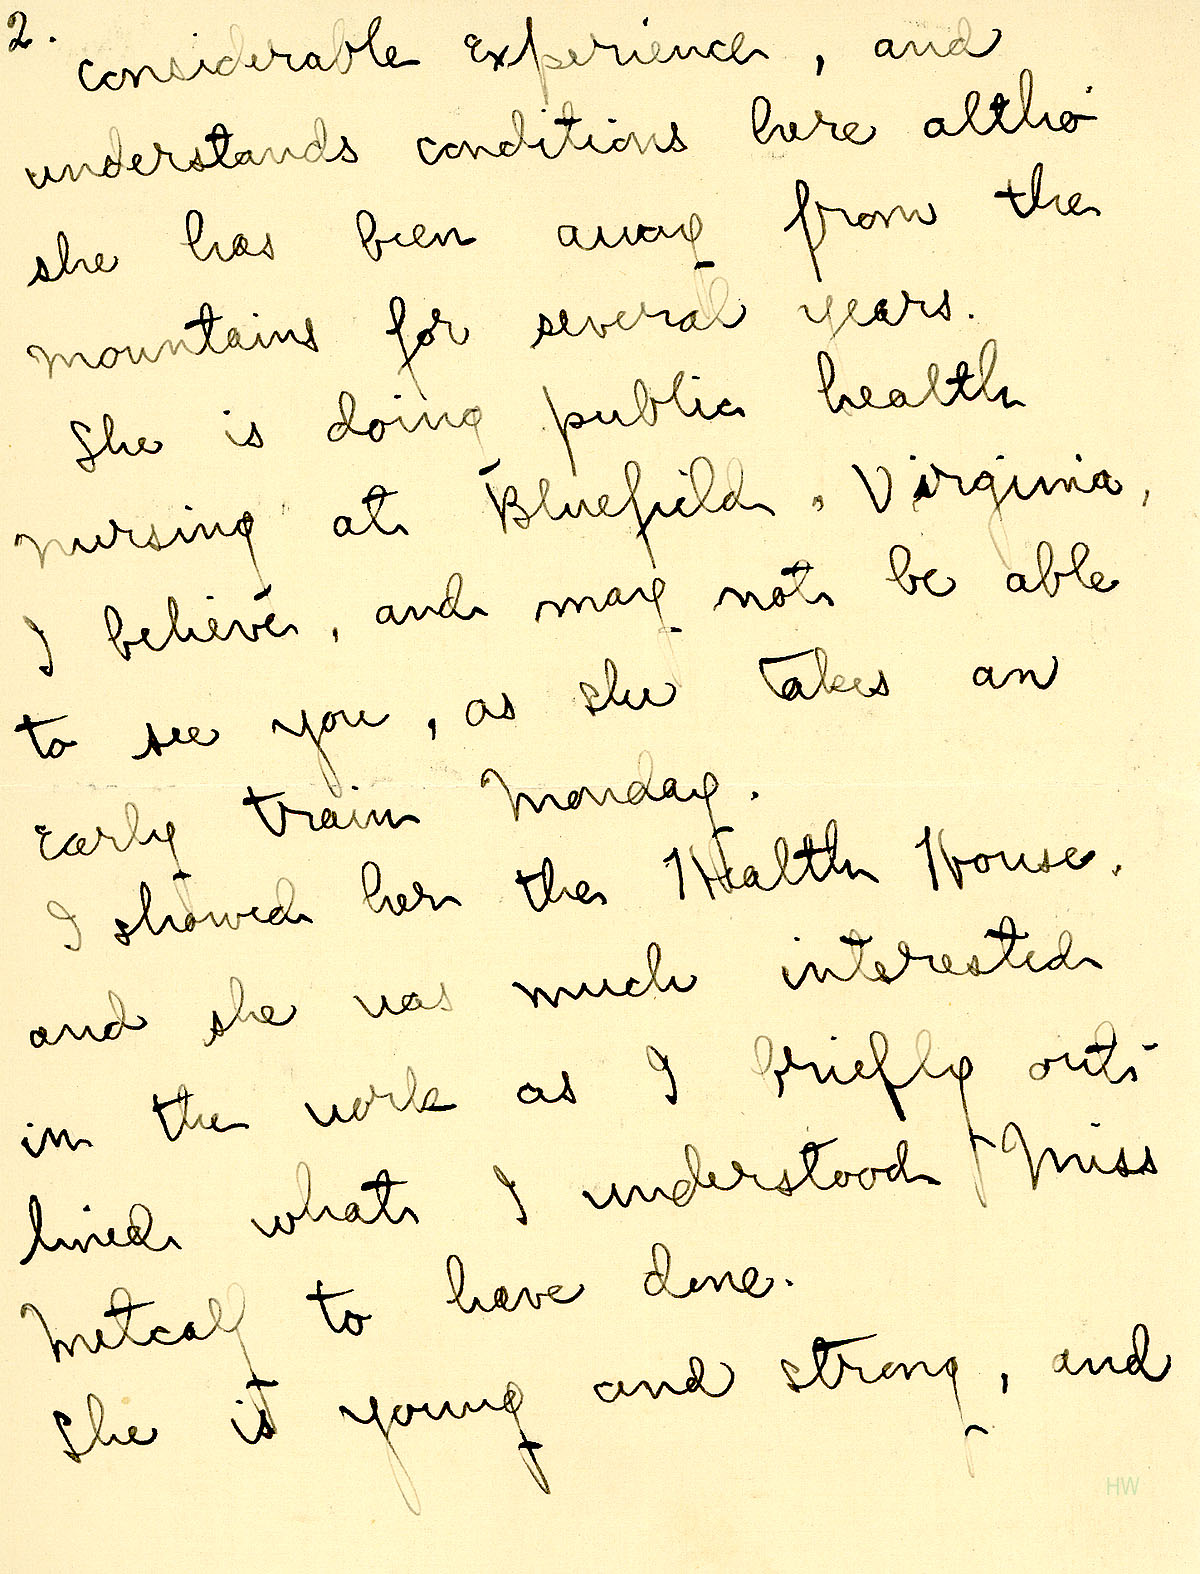 2.
considerable experience, and
understands conditions here altho'
she has been away from the
mountains for several years.
She is doing public health
nursing at Bluefield, Virginia,
I believe, and may not be able
to see you, as she takes an
early train Monday.
I showed her the Health House,
and she was much interested
in the work as I briefly out-
lined what I understood Miss
Metcalf to have done.
She is young and strong, and
HW